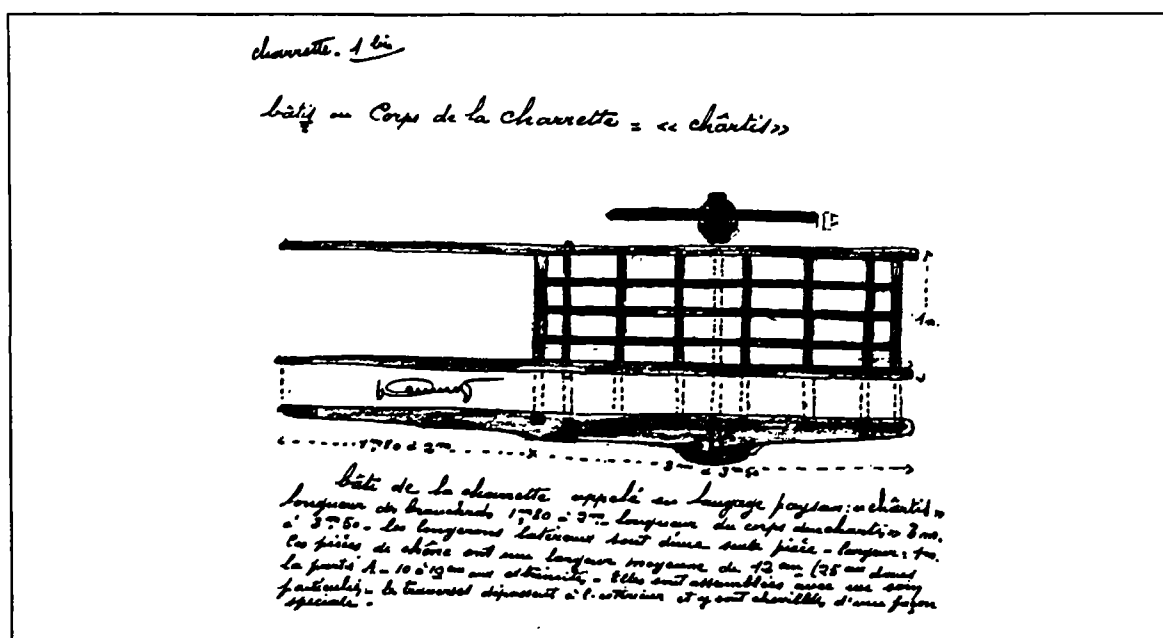 charrette. 1 bis
bâtis ou Corps de la charrette = « chârtis»
1m
1m80 à 2m
3m à 3m50
bâti de la charrette appelé en langage paysan: «chârtis»
longueur des brancards 1m80 à 2m. longueur du corps du chartis» 3m.
à 3m50 - les longerons latéraux sont d'une seule pièce - largeur: 1m.
Ces pièces de chêne ont une largeur moyenne de 12 cm (25 cm dans
la partie A - 10 à 12 cm aux extrémités. - Elles sont assemblées avec un soin
particulier - les traverses dépassent à l'extérieur et y sont chevillées d'une façon
spéciale -